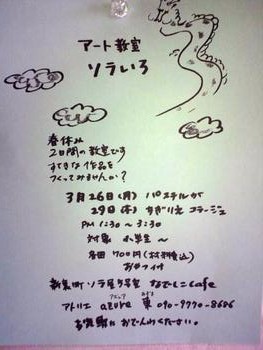 アート教室
ソラいろ
春休み
2日間の教室です
すてきな作品を
つくってみませんか?
3月26日(月) パステルが
29日(木) ちぎりえ コラージュ
PM 1:30〜3:30
対象 小学生〜
各回 700円(材料費込)
おやつ付
ソラ尾5号室 なでしこcafe
アトリエ azure 東 090-9770-8686
お気軽に おでんわください。